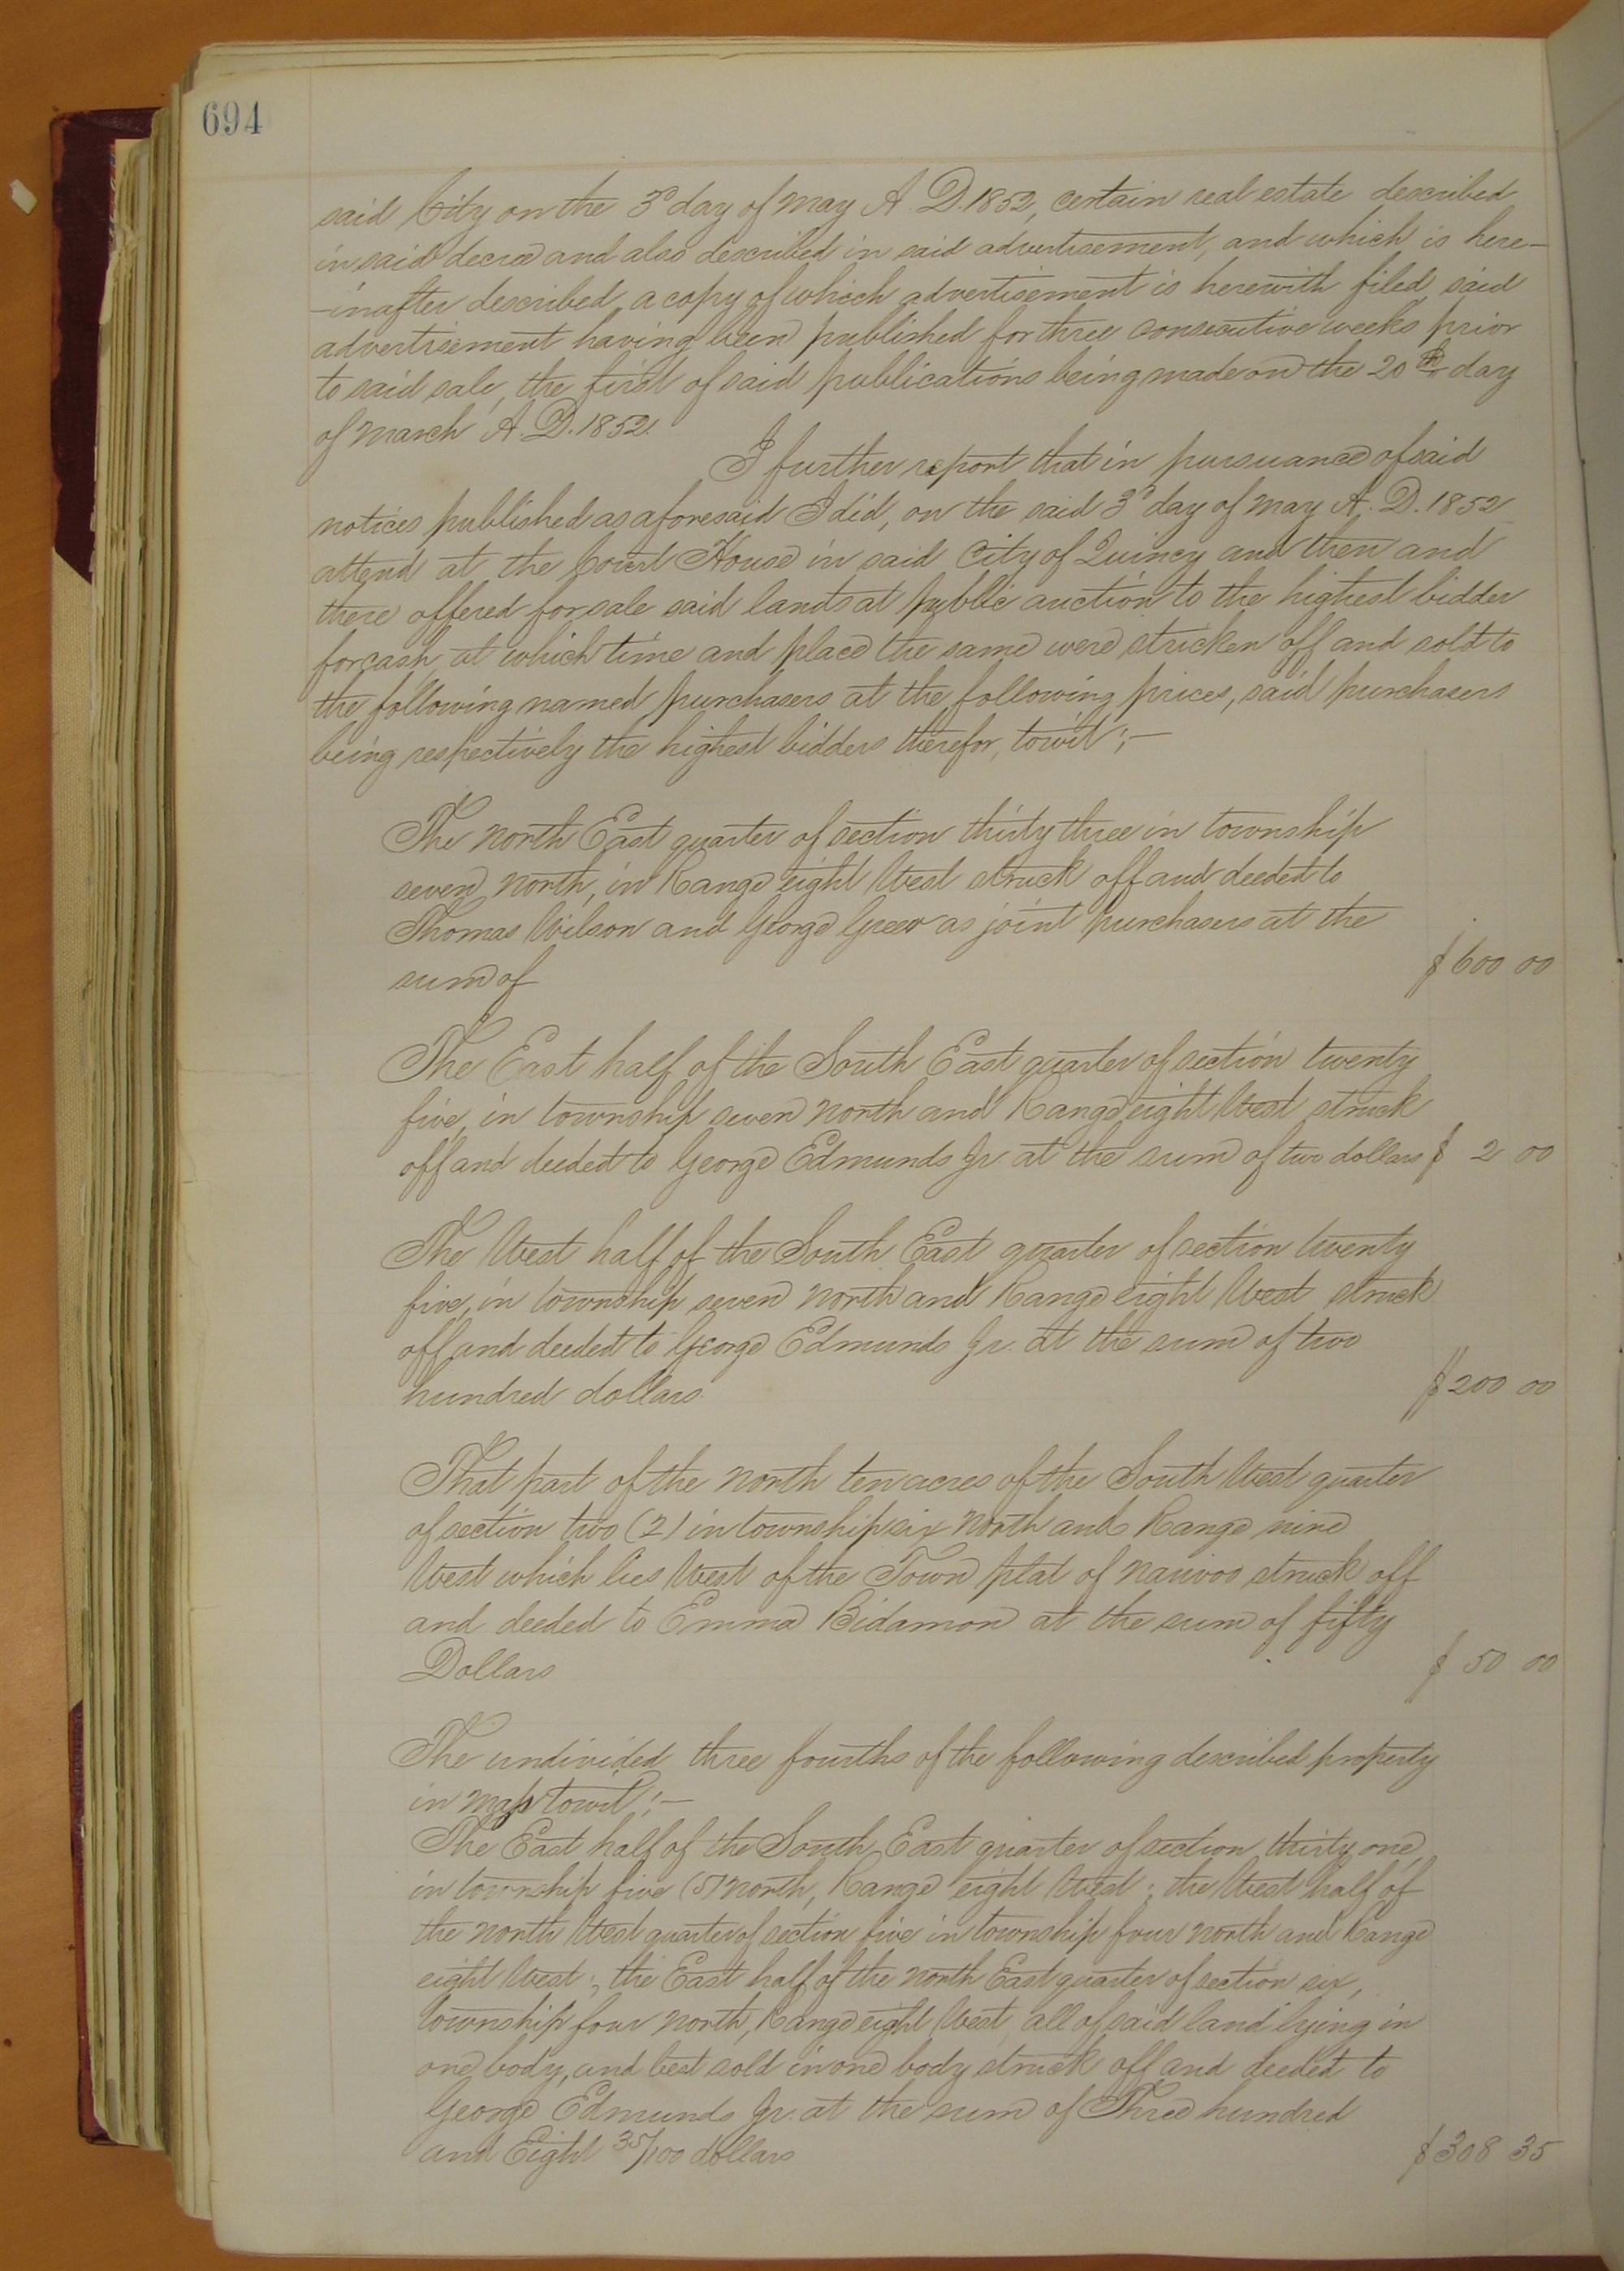 694
said City on the 3d day of May A. D. 1852, certain real estate described
in said decree and also described in said advertisement, and which is here-
-inafter described, a copy of which advertisement is herewith filed, said
advertisement having been published for three consecutive weeks prior
to said sale, the first of said publications being made on the 20th day
of March A. D. 1852.
I further report that in pursuance of said
notices published as aforesaid I did, on the said 3d day of May A. D. 1852
attend at the Court House in said City of Quincy and then and
there offered for sale said lands at public auction to the highest bidder
for cash, at which time and place the same were stricken off and sold to
the following named purchasers at the following prices, said purchasers
being respectively the highest bidders therefor, towit;-
The North East quarter of section thirty three in township
seven North, in Range eight West struck off and deeded to
Thomas Wilson and George Greer as joint purchasers at the
sum of $600 00
The East half of the South East quarter of section twenty
five, in township seven North and Range eight West struck
off and deeded to George Edmunds Jr. at the sum of two dollars $ 2 00
The West half of the South East quarter of section twenty
five, in township seven North and Range eight West struck
off and deeded to George Edmunds Jr. at the sum of two
hundred dollars. $200 00
That part of the North ten acres of the South West quarter
of section two (2) in township six North and Range nine
West which lies West of the Town plat of Nauvoo struck off
and deeded to Emma Bidamon at the sum of fifty
Dollars $ 50 00
The undivided three fourths of the following described property
in Mass towit;-
The East half of the South East quarter of section thirty one,
in township five (5) North, Range eight West; the West half of
the North West quarter of section five in township four North and Range
eight West; the East half of the North East quarter of section six,
township four North, Range eight West all of said land lying in
one body, and best sold in one body struck off and deeded to
George Edmunds Jr. at the sum of Three hundred
and Eight 35/100 dollars $308 35